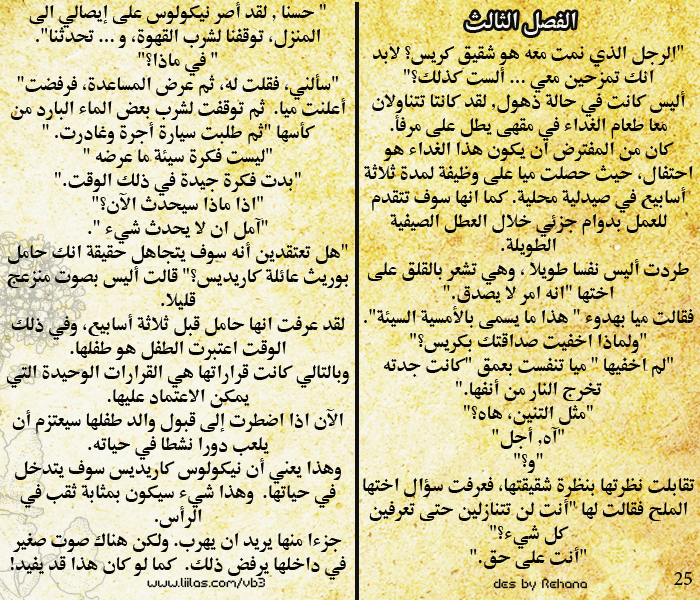 الفصل الثالث
"الرجل الذي نمت معه هو شقيق كريس؟ لابد
انك تمزحين معي ... ألست كذلك؟"
أليس كانت في حالة ذهول, لقد كانتا تتناولان
معا طعام الغداء في مقهى يطل على مرفأ.
كان من المفترض ان يكون هذا الغداء هو
احتفال، حيث حصلت ميا على وظيفة لمدة ثلاثة
أسابيع في صيدلية محلية. كما انها سوف تتقدم
للعمل بدوام جزئي خلال العطل الصيفية
الطويلة.
طردت أليس نفسا طويلا , وهي تشعر بالقلق على
اختها "انه امر لا يصدق."
فقالت ميا بهدوء " هذا ما يسمى بالأمسية السيئة".
"ولماذا اخفيت صداقتك بكريس؟"
"لم اخفيها " ميا تنفست بعمق "كانت جدته
تخرج النار من أنفها."
"مثل التنين، هاه؟"
"آه, أجل"
"و؟"
تقابلت نظرتها بنظرة شقيقتها، فعرفت سؤال اختها
الملح فقالت لها "أنت لن تتنازلين حتى تعرفين
كل شيء؟"
"أنت على حق."
25
des by Rehana
" حسنا , لقد أصر نيكولوس على إيصالي الى
المنزل، توقفنا لشرب القهوة، و ... تحدثنا".
" في ماذا؟"
"سألني، فقلت له، ثم عرض المساعدة، فرفضت"
أعلنت ميا. ثم توقفت لشرب بعض الماء البارد من
كأسها "ثم طلبت سيارة أجرة وغادرت. "
"ليست فكرة سيئة ما عرضه "
"بدت فكرة جيدة في ذلك الوقت."
"اذا ماذا سيحدث الآن؟"
"آمل ان لا يحدث شيء ".
"هل تعتقدين أنه سوف يتجاهل حقيقة انك حامل
بوريث عائلة كاريديس؟" قالت أليس بصوت منزعج
قليلا.
لقد عرفت انها حامل قبل ثلاثة أسابيع، وفي ذلك
الوقت اعتبرت الطفل هو طفلها.
وبالتالي كانت قراراتها هي القرارات الوحيدة التي
يمكن الاعتماد عليها.
الآن اذا اضطرت إلى قبول والد طفلها سيعتزم أن
يلعب دورا نشطا في حياته.
وهذا يعني أن نيكولوس كاريديس سوف يتدخل
في حياتها. وهذا شيء سيكون بمثابة ثقب في
الرأس.
جزءا منها يريد ان يهرب. ولكن هناك صوت صغير
في داخلها يرفض ذلك. كما لو كان هذا قد يفيد!
www.liilas.com/vb3